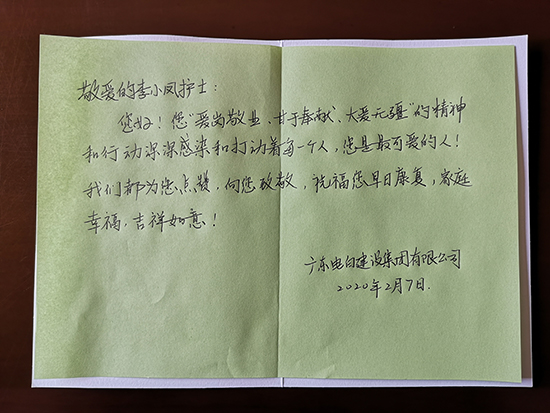 敬爱的李小凤护士：
您好！您“爱岗敬业、甘于奉献、大爱无疆”的精神
和行动深深感染和打动着每一个人，您是最可爱的人！
我们都为您点赞，向您致敬，祝福您早日康复，家庭
幸福，吉祥如意！
广东电白建设集团有限公司
2020年2月7日.